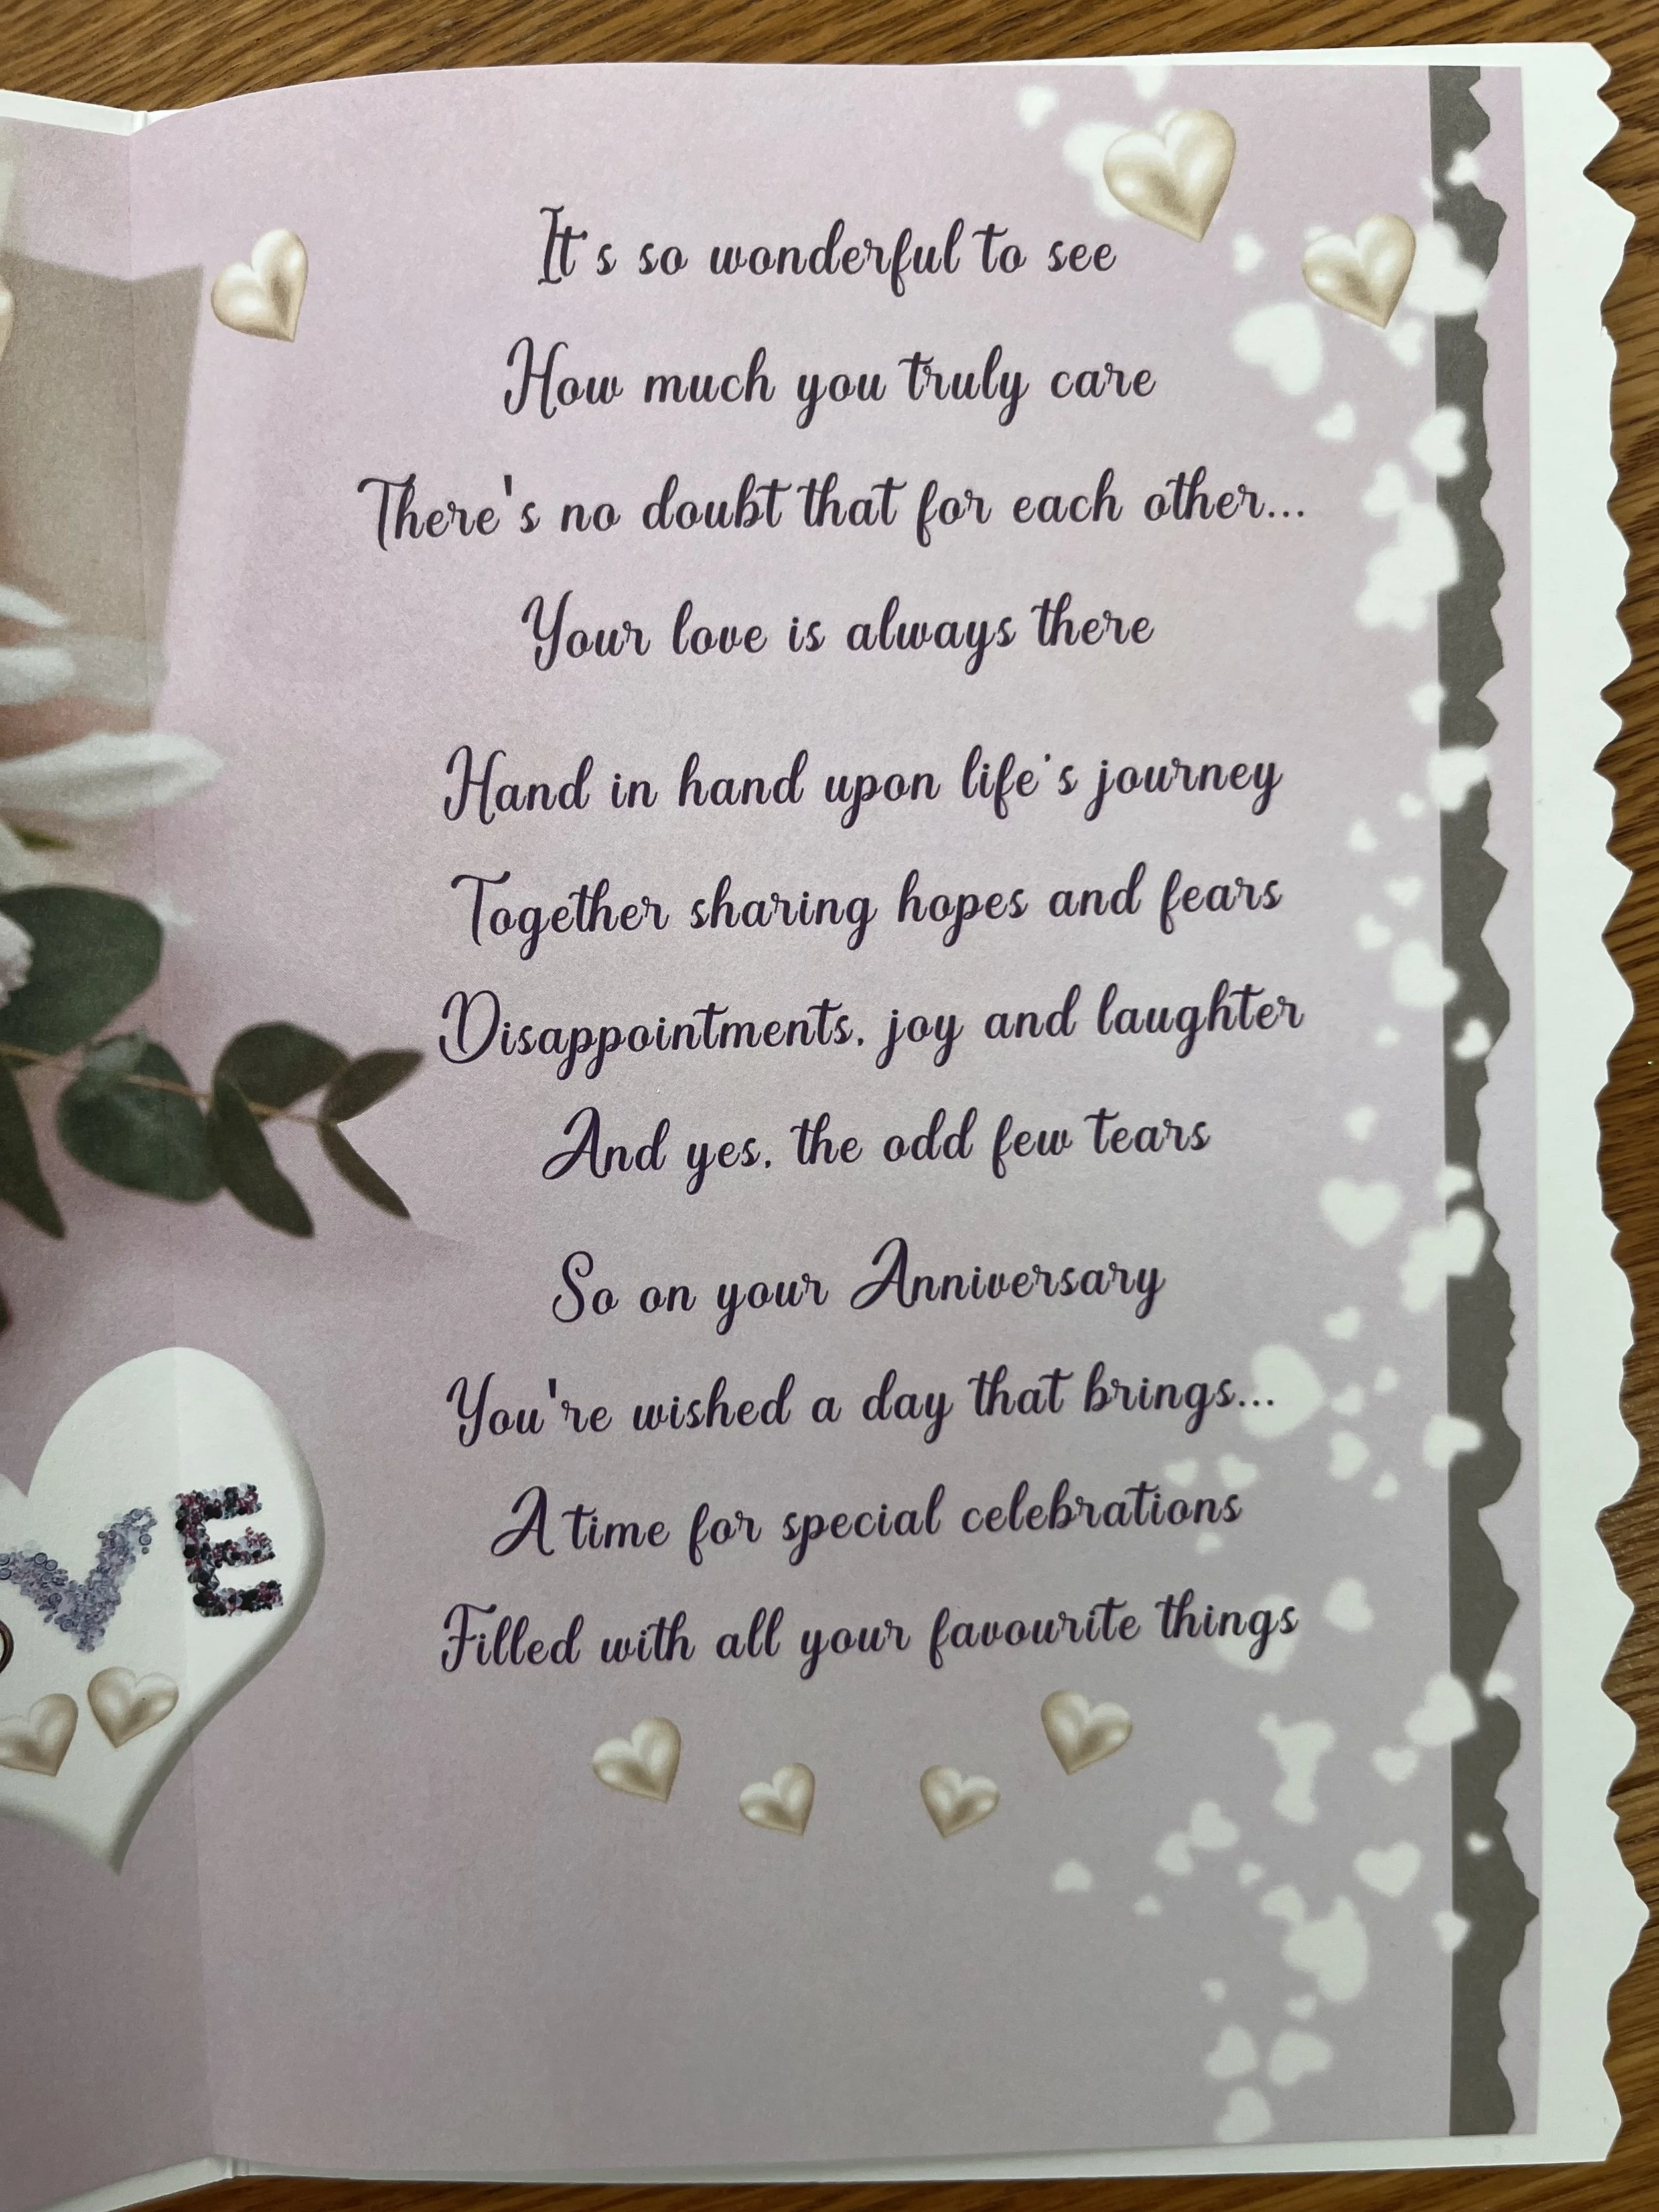 It's so wonderful to see
How much you truly care
There's no doubt that for each other...
Your love is always there
Hand in hand upon life's journey
Together sharing hopes and fears
Disappointments, joy and laughter
And yes, the odd few tears
So on your Anniversary
You're wished a day that brings...
A time for special celebrations
Filled with all your favourite things
VE